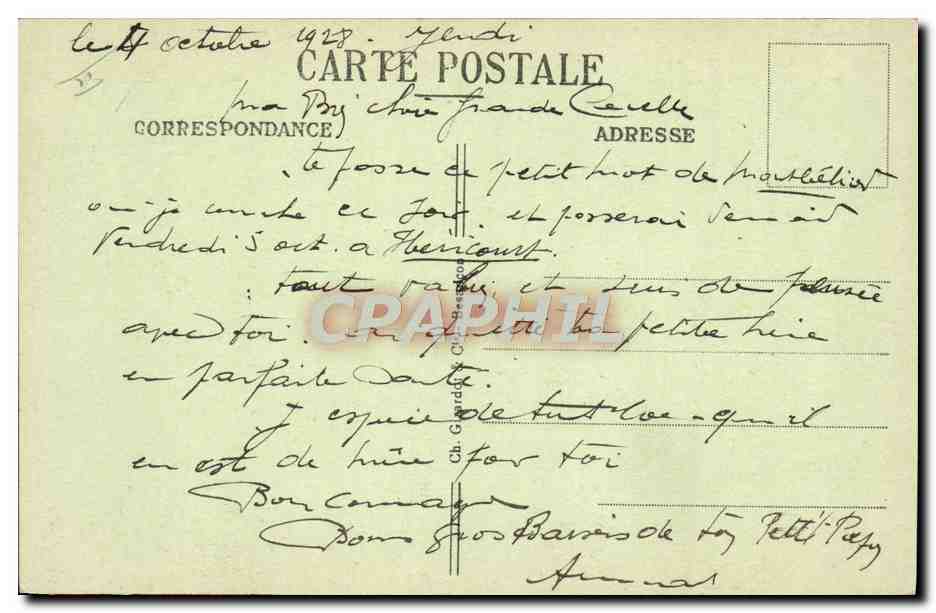 le 4 octobre 1928. Jeudi
CARTE POSTALE
ma chère grande
CORRESPONDANCE
ADRESSE
te passe ce petit mot de Montbéliard
où je couche ce soir. et passerai demain
Vendredi 5 oct. a Héricourt.
tout va bien et suis de pensée
avec toi. ai quitté ta petite
en parfaite santé.
J espère de tout qu il
en est de même pour toi
Bon courage
Bons gros Baisers de ton Petit Papa
CRAPHIL
Ch. Girardot & Cie, Besançon